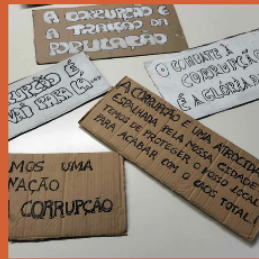 A CORRUPÇÃO É
A TRAIÇÃO DA
POPULAÇÃO
O COMBATE À
CORRUPÇÃO
É A GLÓRIA D
RUPÇÃO É
VAI PARA
A CORRUPÇÃO É UMA ATROCIDADE
ESPALHADA PELA NOSSA CIDADE
TEMOS DE PROTEGER O NOSSO LOCAL
PARA ACABAR COM O CAOS TOTAL!
MOS UMA
NAÇÃO
CORRUPÇÃO